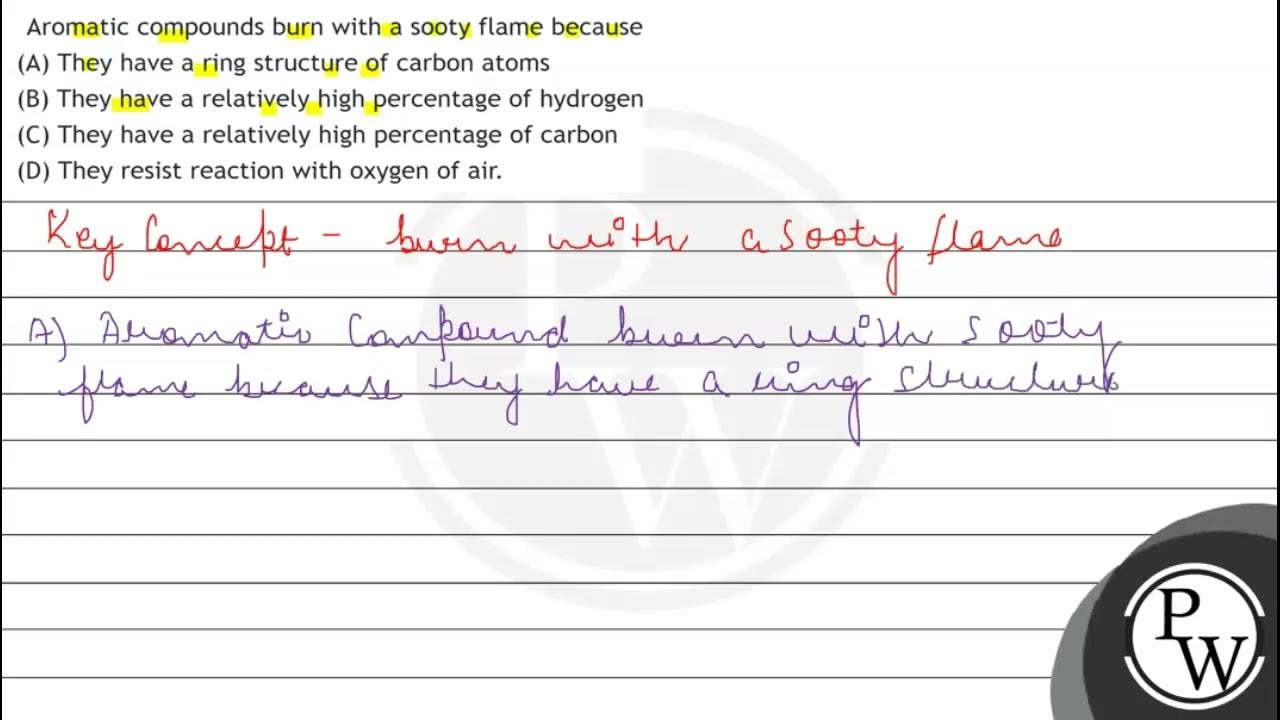 Aromatic compounds burn with a sooty flame because
(A) They have a ring structure of carbon atoms
(B) They have a relatively high percentage of hydrogen
(C) They have a relatively high percentage of carbon
(D) They resist reaction with oxygen of air.
Key Concept - burn with a sooty flame
A) Aromatic Compound burn with sooty
flame because they have a ring structure
PW
P
W